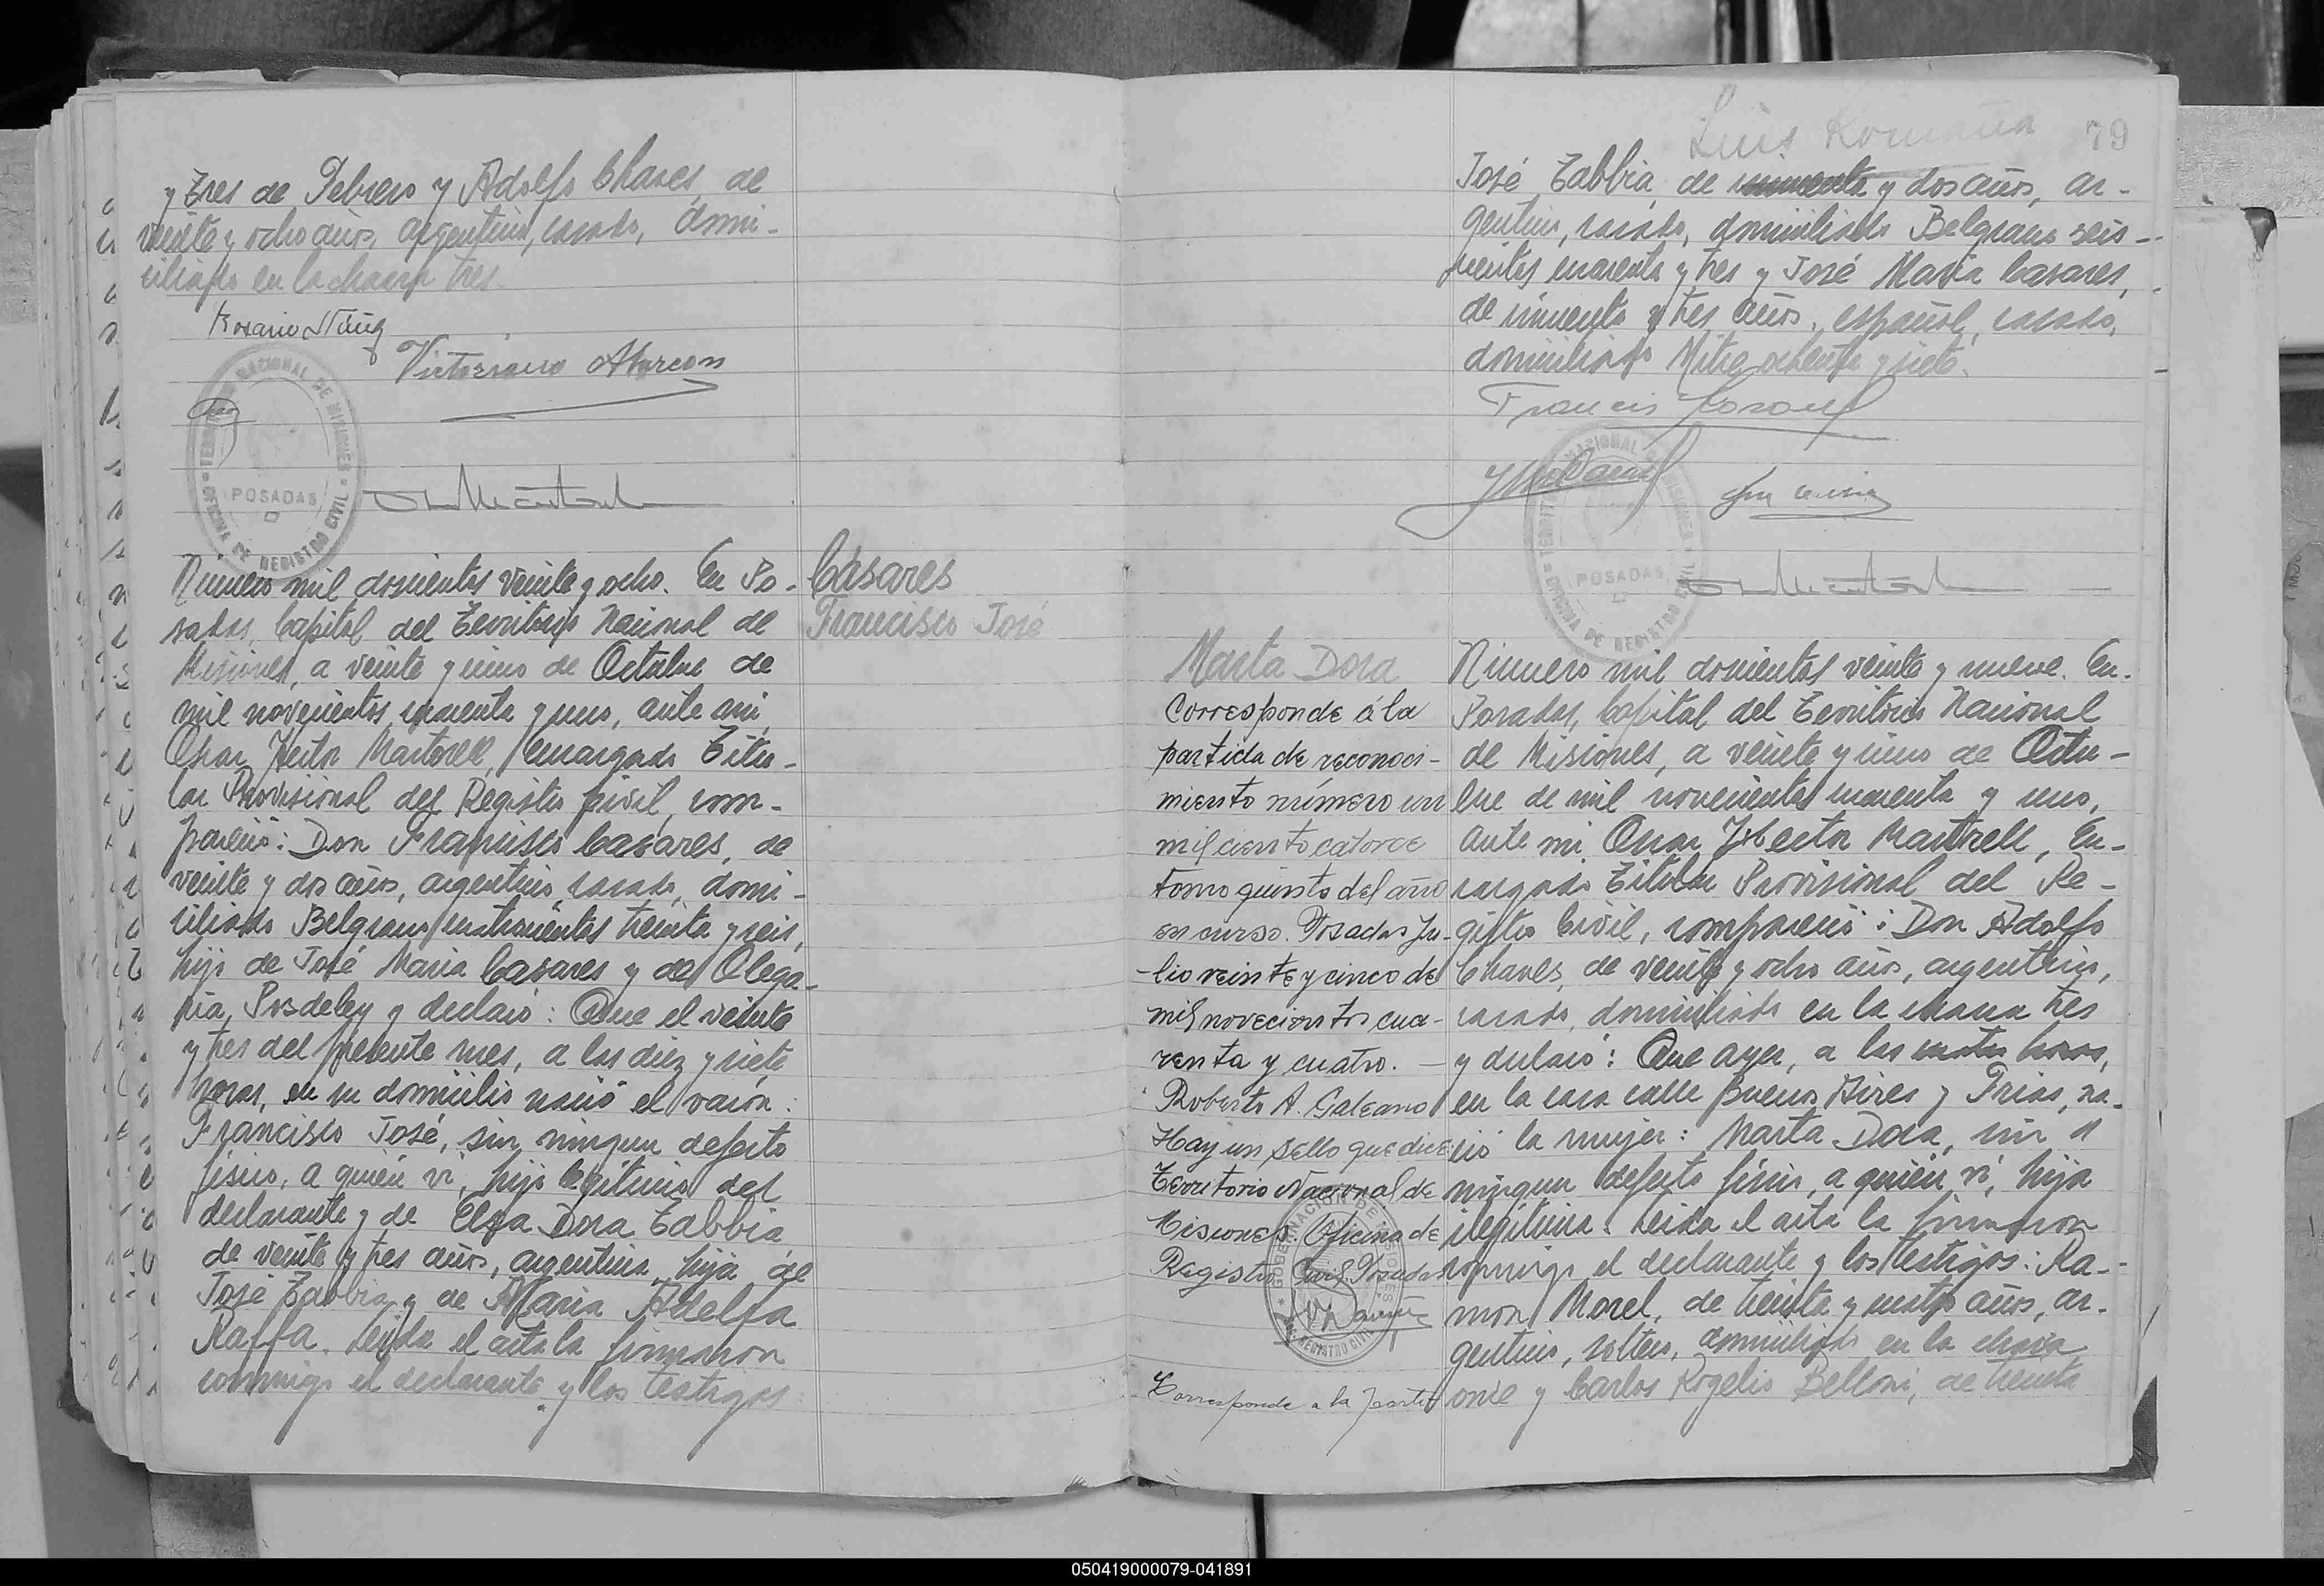 y tres de Febrero y Adolfo Chaves, de
veinte y ocho años, argentino, casado, domi-
ciliado en la chacra tres.
Rosario Núñez
Victoriano Alarcon
TERRITORIO NACIONAL DE MISIONES
POSADAS
OFICINA DE REGISTRO CIVIL
Número mil doscientos veinte y ocho. En Po-
sadas, Capital del Territorio Nacional de
Misiones, a veinte y cinco de Octubre de
mil novecientos cuarenta y uno, ante mi
Oscar Hector Martorell, Encargado Titu-
lar Provisional del Registro Civil, com-
pareció: Don Francisco Casares, de
veinte y dos años, argentino, casado, domi-
ciliado Belgrano cuatrocientos treinta y seis,
hijo de José Maria Casares y de Olega-
ria Posdeley y declaró: Que el veinte
y tres del presente mes, a las diez y siete
horas, en su domicilio nació el varón:
Francisco José, sin ningun defecto
físico, a quién vi, hijo legítimo del
declarante y de Elsa Dora Tabbia
de veinte y tres años, argentina, hija de
José Tabbia y de Maria Adelfa
Raffa. Leida el acta la firmaron
conmigo el declarante y los testigos:
Casares
Francisco José
Luis Romaña
79
José Tabbia, de cincuenta y dos años, ar-
gentino, casado, domiciliado Belgrano seis-
cientos cuarenta y tres y José Maria Casares,
de cincuenta y tres años, español, casado,
domiciliado Mitre ochenta y siete.
Francisco Casares
TERRITORIO NACIONAL DE MISIONES
POSADAS
OFICINA DE REGISTRO CIVIL
Marta Dora
Corresponde á la
partida de reconoci-
miento número un
mil ciento catorce
tomo quinto del año
en curso. Posadas Ju-
-lio veinte y cinco de
mil novecientos cua-
renta y cuatro. —
Roberto A. Galeano
Hay un sello que dice
Territorio Nacional de
Misiones. Oficina de
Registro Civil Posadas
Corresponde a la parti
Número mil doscientos veinte y nueve. En
Posadas, Capital del Territorio Nacional
de Misiones, a veinte y cinco de Octu-
bre de mil novecientos cuarenta y uno,
ante mi Oscar Hector Martorell, En-
cargado Titular Provisional del Re-
gistro Civil, compareció: Don Adolfo
Chaves, de veinte y ocho años, argentino,
casado, domiciliado en la chacra tres
y declaró: Que ayer, a las cuatro horas,
en la casa calle Buenos Aires y Frias, na-
ció la mujer: Marta Dora, sin
ningun defecto físico, a quién vi, hija
ilegítima. Leida el acta la firmaron
conmigo el declarante y los testigos: Ra-
mon Morel, de treinta y cuatro años, ar-
gentino, soltero, domiciliado en la chacra
once y Carlos Rogelio Belloni, de treinta
050419000079-041891